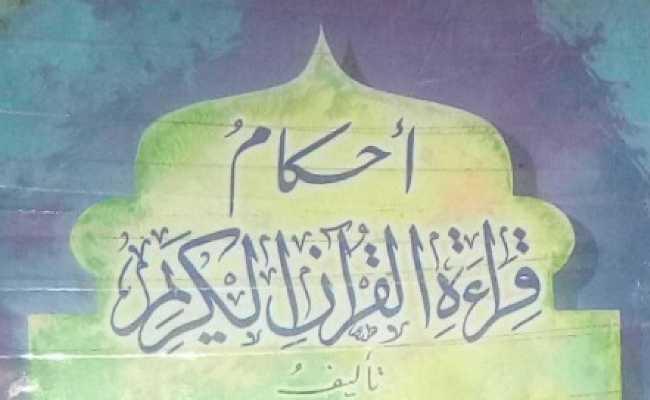 أحكامُ
قِرَاءَةِ القُرآنِ الكَرِيْمِ
تأليفُ